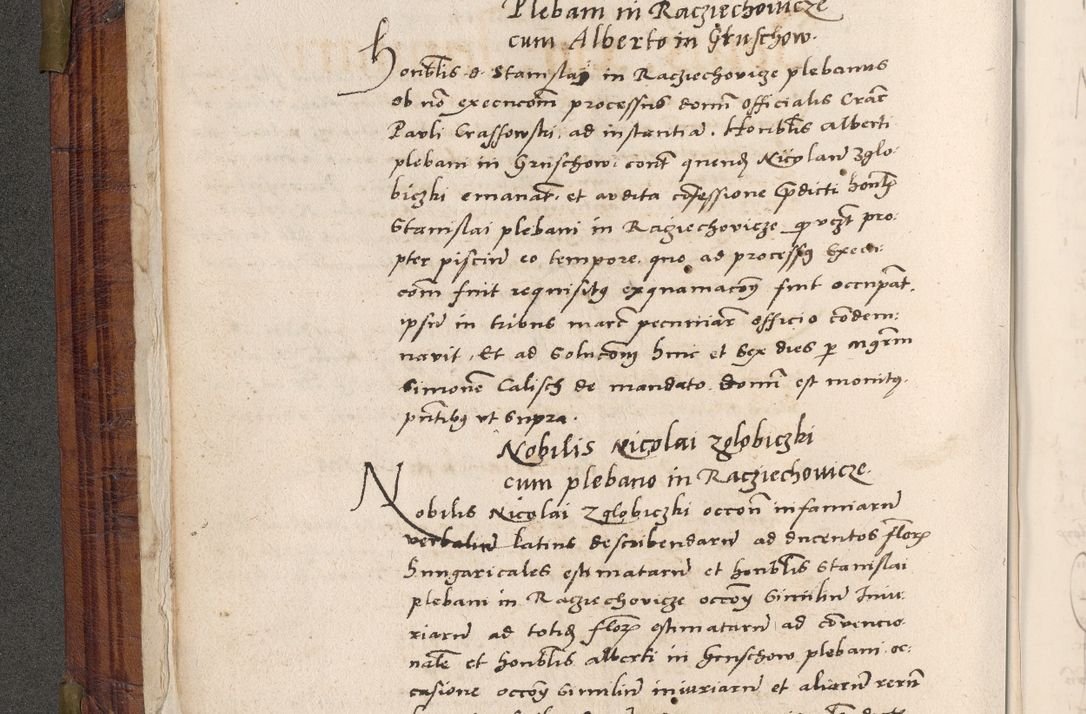 Plebani in Racziechovicze
cum Alberto in Gruschow.
Honblis d. Stanislaj in Raczechovicze plebanus
ob nō execucōm processus domī officialis Crac̄
Pavli Crassowski, ad instantiā. Honblis Alberti
plebani in Gruschow. cont̄ quend Nicolaū Zglo-
biczki emanat. et audita cōfessione p̄dicti honb
Stanislai plebani in Raczechovicze
pter pisciū eo tempore. quo ad processū execu
cōm fuit requisitus fuit occupat.
ipsū in tribus marc̄ pecuniar officio condem:
navit. Et ad Solucōm hinc et Sex dies p mgrm
Simonē Calisch de mandato domī est monitus.
pntibus ut Supra.
Nobilis Nicolai Zglobiczki
cum plebano in Raczechowicze.
Nobilis Nicolai Zglobiczki occōn infamiarū
verbaliū latius describendarū ad ducentos floр
hungaricales estimatarū et honblis Stanislai
plebani in Raczechovicze occōn Similiū Iniu-
riarū ad totid flor estimatarū ad cōvencio
nalē et honblis Alberti in Gruschow plebani oc-
casione occōn Similiū iniuriarū et aliarū rerū